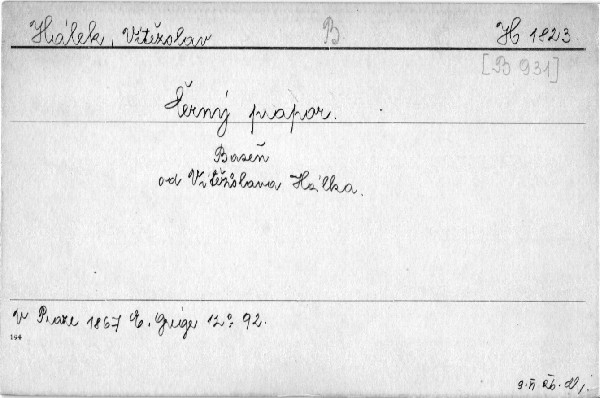 Hálek, Vítězslav B H 1823
[B 931]
Černý prapor.
Baseň
od Vítězslava Hálka.
v Praze 1867 E. Grégr 12°. 92.
164